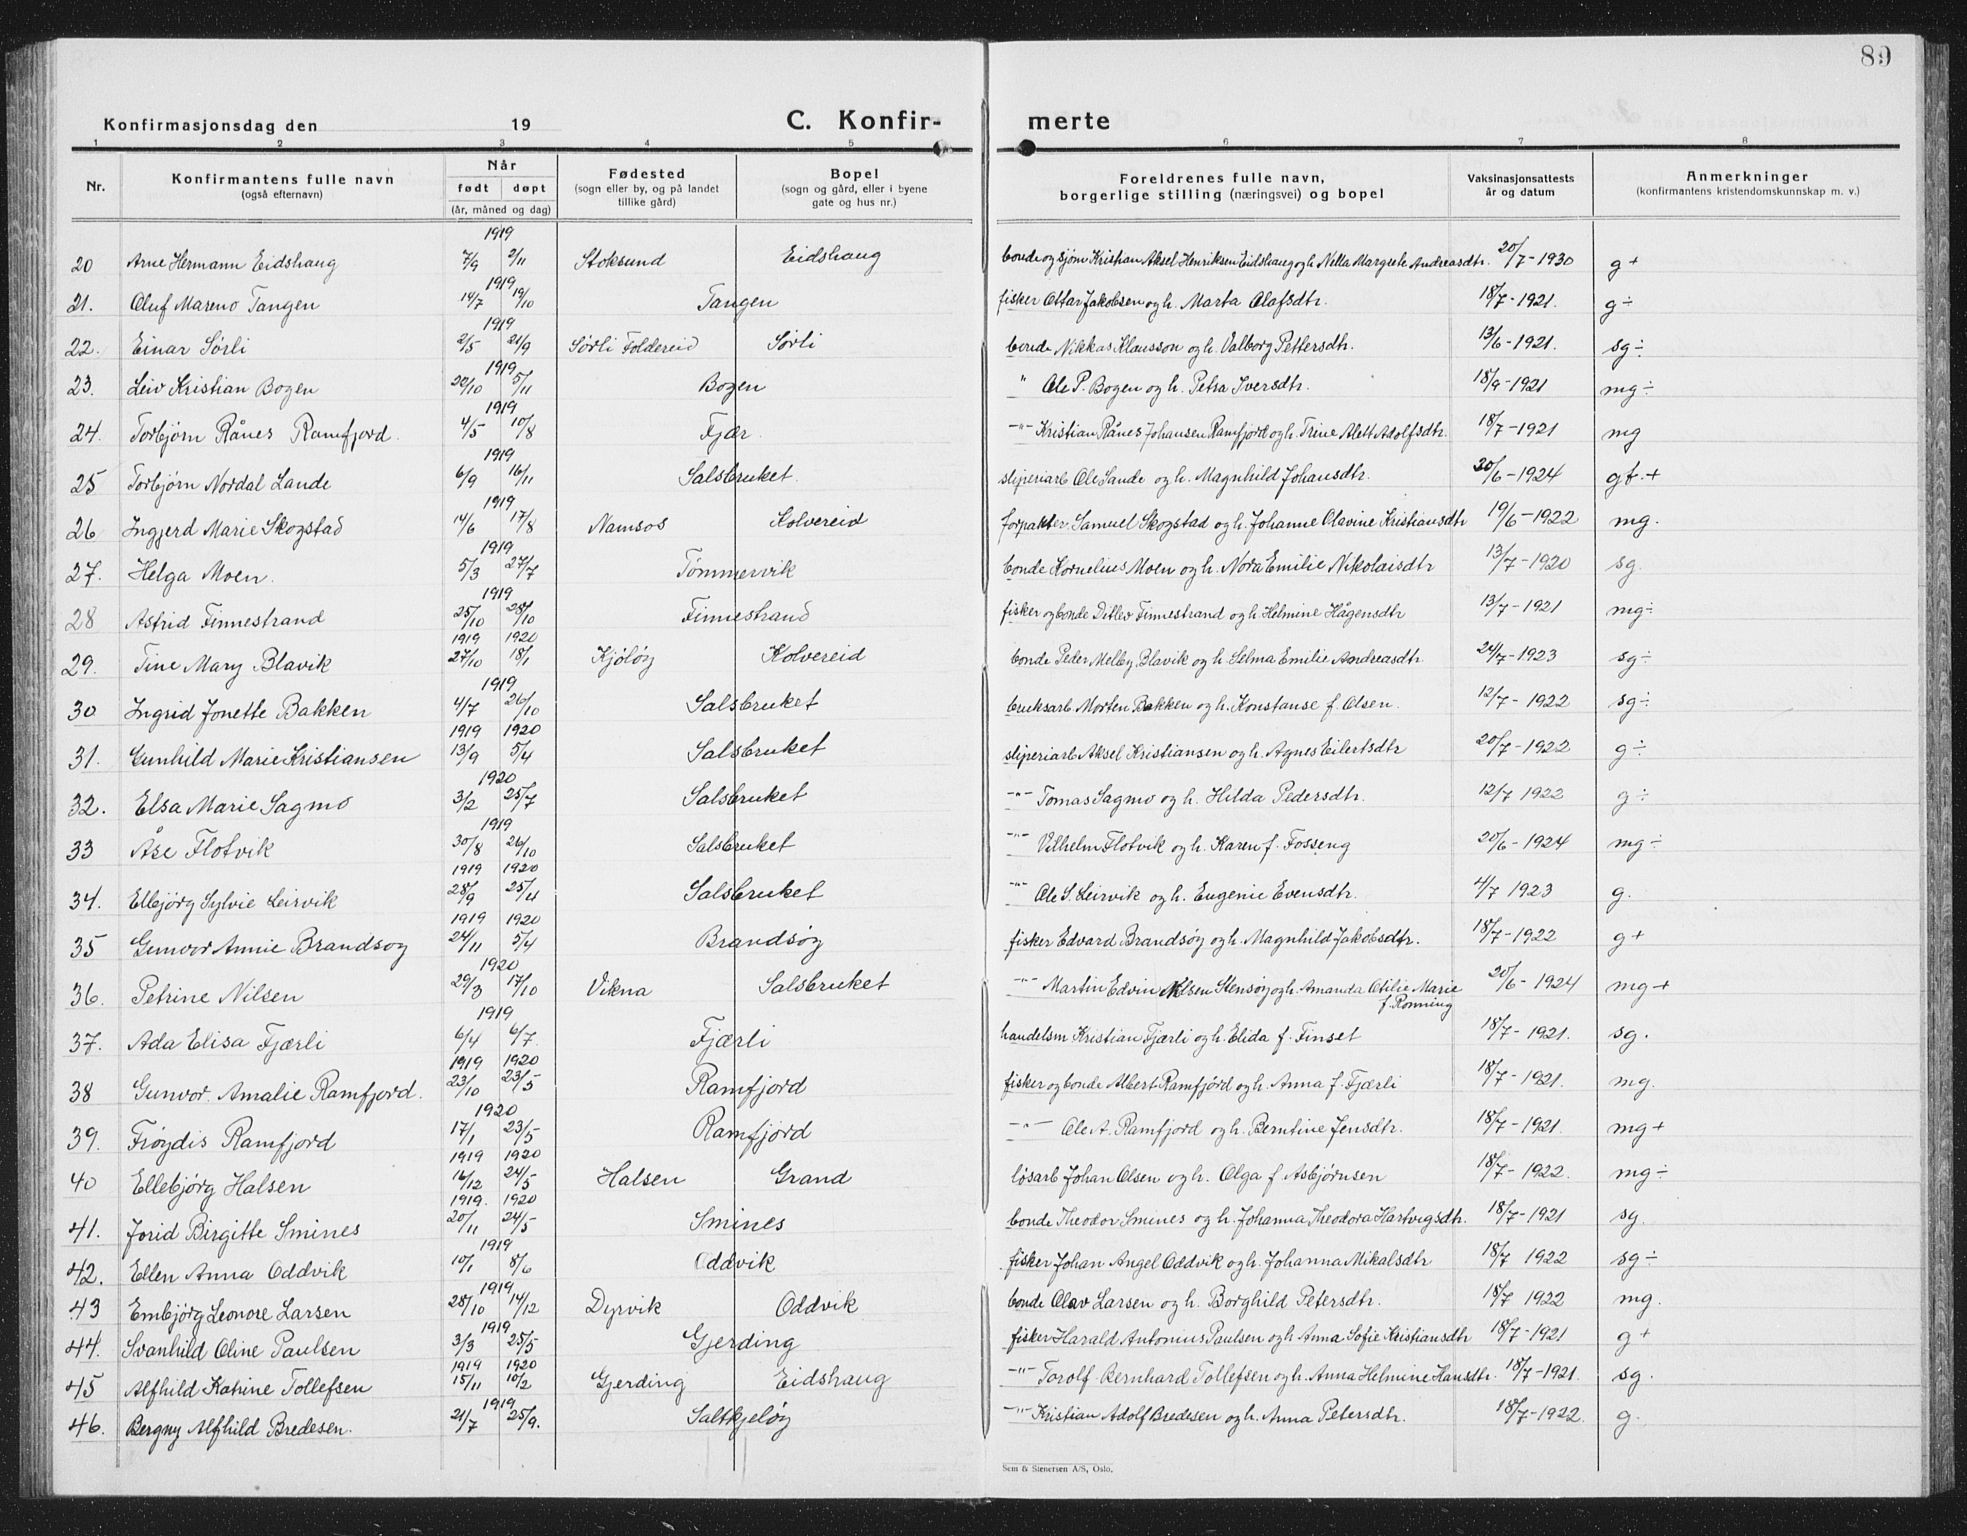 89
Konfirmasjonsdag den 19 C. Konfir- merte
1 2 3 4 5 6 7 8
Nr. Konfirmantens fulle navn (også efternavn) Når født døpt (år, måned og dag) Fødested (sogn eller by, og på landet tillike gård) Bopel (sogn og gård, eller i byene gate og hus nr.) Foreldrenes fulle navn, borgerlige stilling (næringsvei) og bopel Vaksinasjonsattests år og datum Anmerkninger (konfirmantens kristendomskunnskap m. v.)
1919
20 Arne Hermann Eidshaug 7/9 2/11 Stoksund Eidshaug bonde og sjøm Kristian Aksel Henriksen Eidshaug og h. Nella Margrete Andreasdtr. 20/7-1930 g+
1919
21. Oluf Mareno Tangen 14/7 19/10 Tangen fisker Ottar Jakobsen og h. Marta Olafsdtr. 18/7-1921. g÷
1919
22. Einar Sørli 2/5 21/9 Sørli Foldereid Sørli bonde Nikkas Klausson og h. Valborg Pettersdtr. 13/6-1921. sg÷
1919
23. Leiv Kristian Bogen 22/10 5/11 Bogen " Ole P. Bogen og h. Petra Iversdtr. 18/9-1921 mg÷
1919
24. Torbjørn Rånes Ramfjord. 4/5 10/8 Fjær. -"- Kristian Rånes Johansen Ramfjord og h. Trine Alett Adolfsdtr. 18/7-1921 mg
1919
25 Torbjørn Nordal Lande 6/9 16/11 Salsbruket. sliperiarb Ole Sande og h. Magnhild Johansdtr. 20/6-1924 gt.+
1919
26 Ingjerd Marie Skogstad 14/6 17/8 Namsos Kolvereid forpakter Samuel Skogstad og h. Johanne Olavine Kristiansdtr 19/6-1922 mg.
1919
27. Helga Moen. 5/3 27/7 Tømmervik bonde Kornelius Moen og h. Nora Emilie Nikolaisdtr 13/7-1920 sg.
1919
28 Astrid Finnestrand 25/10 28/10 Finnestrand fisker og bonde Ditlev Finnestrand og h. Helmine Hågensdtr 13/7-1921 mg÷
1919 1920
29. Tine Mary Blavik 27/10 18/1 Kjøløy Kolvereid bonde Peder Melby Blavik og h. Selma Emilie Andreasdtr 24/7-1923 sg÷
1919
30 Ingrid Jonette Bakken 4/7 26/10 Salsbruket bruksarb Morten Bakken og h. Konstanse f. Olsen. 12/7-1922 sg÷
1919 1920
31. Gunhild Marie Kristiansen 13/9 5/4 Salsbruket sliperiarb Aksel Kristiansen og h. Agnes Eilertsdtr 20/7-1922 g÷
1920
32. Elsa Marie Sagmo 3/2 25/7 Salsbruket -"- Tomas Sagmo og h. Hilda Pedersdtr. 12/7 1922 g÷
1919
33 Åse Flotvik 30/8 26/10 Salsbruket -"- Vilhelm Flotvik og h. Karen f. Fosseng 20/6-1924 mg÷
1919 1920
34. Ellbjörg Sylvie Leirvik 28/9 25/4 Salsbruket -"- Ole S. Leirvik og h. Eugenie Evensdtr. 4/7 1923 g.
1919 1920
35 Gunvor Annie Brandsøy 24/11 5/4 Brandsøy fisker Edvard Brandsøy og h. Magnhild Jakobsdtr. 18/7-1922 g+
1920
36. Petrine Nilsen 29/3 17/10 Vikna Salsbruket -"- Martin Edvin Nilsen Stensøy og h. Amanda Otilie Marie f. Rønning 20/6-1924 mg+
1919
37. Ada Elisa Fjærli 6/4 6/7. Fjærli handelsm Kristian Fjærli og h. Elida f. Finset 18/7-1921. sg.
1919 1920
38 Gunvor. Amalie Ramfjord. 23/10 23/5 Ramfjord fisker og bonde Albert Ramfjord og h. Anna f. Fjærli 18/7-1921. mg.
1920
39. Frøydis Ramfjord 17/1 23/5 Ramfjord -"- Ole A. Ramfjord og h. Berntine Jensdtr. 18/7-1921. mg+
1919 1920
40 Ellebjørg Halsen 16/12 24/5 Halsen Grand løsarb Johan Olsen og h. Olga f Asbjørnsen 18/7-1922. mg÷
1919. 1920
41. Jorid Birgitte Smines 20/11 24/5 Smines bonde Theodor Smines og h. Johanna Theodora Hartvigsdtr. 18/7-1921 sg.
1919
42. Ellen Anna Oddvik 10/1 8/6 Oddvik fisker Johan Angel Oddvik og h. Johanna Mikalsdtr 18/7 1922 sg÷
1919
43 Embjørg Leonore Larsen 28/10 14/12 Dyrvik Oddvik bonde Olav Larsen og h. Borghild Petersdtr. 18/7 1922 mg.
1919
44. Svanhild Oline Paulsen 3/3 25/5 Gjerding fisker Harald Antonius Paulsen og h. Anna Sofie Kristiansdtr 18/7-1921 g+
1919 1920
45 Alfhild Katrine Tollefsen 15/11 10/2 Gjerding Eidshaug -"- Torolf Bernhard Tollefsen og h. Anna Helmine Hansdtr. 18/7-1921. sg.
1919
46. Bergny Alfhild Bredesen. 21/7 25/9. Saltkjeløy -"- Kristian Adolf Bredesen og h. Anna Petersdtr. 18/7-1922. g.
Sem & Stenersen A/S, Oslo.